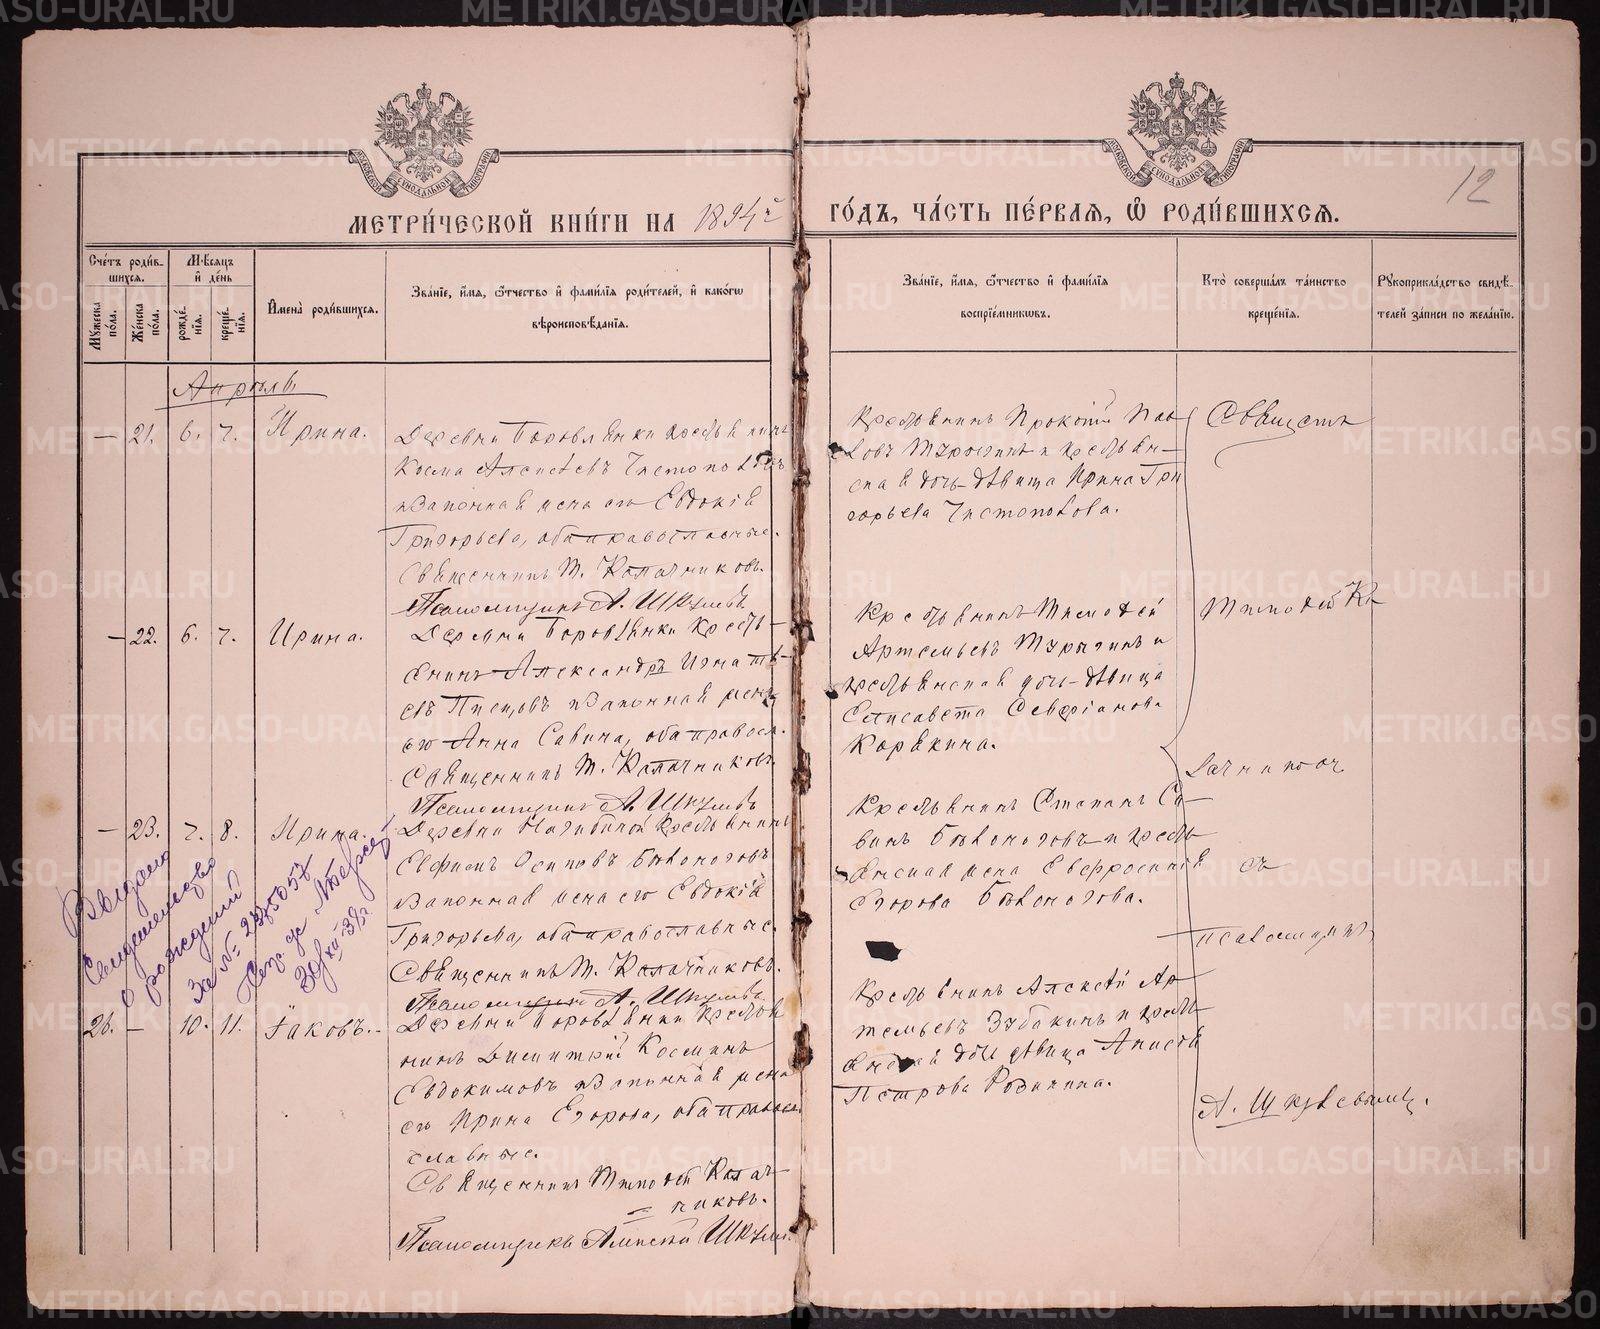 МЕТРИ́ЧЕСКОЙ КНИ́ГИ НА 1894й ГО́ДЪ, ЧА́СТЬ ПЕ́РВАЯ, Ѽ РОДИ́ВШИХСЯ.
12
Сче́тъ роди́в-
шихся.
Му́жеска по́ла.
Же́нска по́ла.
Мѣсяцъ
и де́нь
рожде́-
нія.
креще́-
нія.
Имена̀ роди́вшихся.
Зва́ніе, и́мя, ѻ́тчество и фами́лія роди́телей, и како́гѡ
вѣроисповѣ́данія.
Зва́ніе, и́мя, ѻ́тчество и фами́лія
воспріе́мниковъ.
Кто̀ соверша́лъ та́инство
креще́нія.
Рꙋкоприкла́дство свидѣ́-
телей за́писи по жела́нію.
Апрѣль
— 21. 6. 7. Ирина.
Деревни Боровлянки крестьянинъ
Косма Алексѣевъ Чистополовъ
и законная жена его Евдокія
Григорьева, оба православные.
Священникъ Т. Калачниковъ.
Псаломщикъ А. Шкулевъ
Крестьянинъ Прокопій Пав-
ловъ Турыгинъ и крестьян-
ская дочь-дѣвица Ирина Гри
горьева Чистополова.
— 22. 6. 7. Ирина.
Деревни Боровлянки кресть-
янинъ Александръ Игнать-
евъ Писцовъ и законная жена
его Анна Савина, оба правосл.
Священникъ Т. Калачниковъ
Псаломщикъ А. Шкулевъ
Крестьянинъ Тимофей
Артемьевъ Турыгинъ и
крестьянская дочь-дѣвица
Елисавета Севріанова
Корякина.
— 23. 7. 8. Ирина.
Деревни Нагибиной крестьянинъ
Евфимъ Осиповъ Бѣлоноговъ
и законная жена его Евдокія
Григорьева, оба православные.
Священникъ Т. Калачниковъ.
Псаломщикъ А. Шкулевъ
Крестьянинъ Степанъ Са-
винъ Бѣлоноговъ и кресть-
янская жена Евфросинія
Егорова Бѣлоногова.
Выдано
Свидетельство
о рождений
за №
26. — 10. 11. Іаковъ.
Деревни Боровлянки крестья
нинъ Димитрій Косминъ
Евдокимовъ и законная жена
его Ирина Егорова, оба право
славные.
Священникъ Тимофей Калач-
никовъ.
Псаломщикъ Алексѣй Шкулев
Крестьянинъ Алексѣй Ар-
темьевъ Зубакинъ и кресть-
янская дочь дѣвица Анисія
Петрова Родикина.
Священ
Тимофей Ка
лачниковъ
съ
псаломщик
А. Шкулевымъ.
METRIKI.GASO-URAL.RU